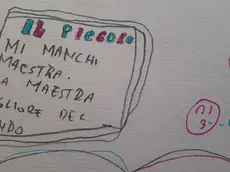 IL PICCOLO
MI MANCHI
MAESTRA.
A MAESTRA
GLIORE DEL
NDO